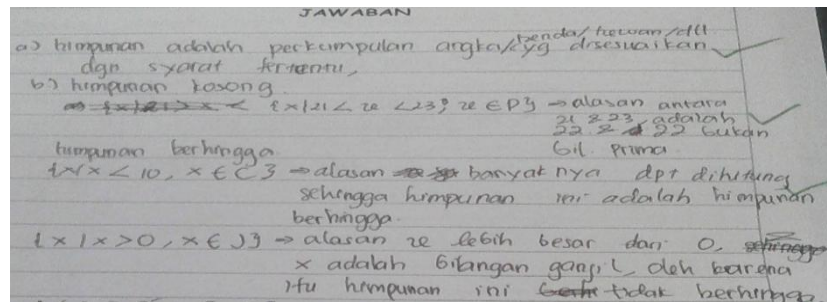 JAWABAN
benda/hewan/dll
a) himpunan adalah perkumpulan angka/yg disesuaikan
dgn syarat tertentu,
b) himpunan kosong
{x|21 < x < 23, x ∈ P} → alasan antara
21 & 23 adalah
22 & 22 bukan
bil. prima
himpunan berhingga
{x/x < 10, x ∈ C} → alasan banyak nya dpt dihitung
sehingga himpunan ini adalah himpunan
berhingga.
{x|x>0, x ∈ J} → alasan x lebih besar dari 0,
x adalah bilangan ganjil, oleh karena
itu himpunan ini tidak berhingga